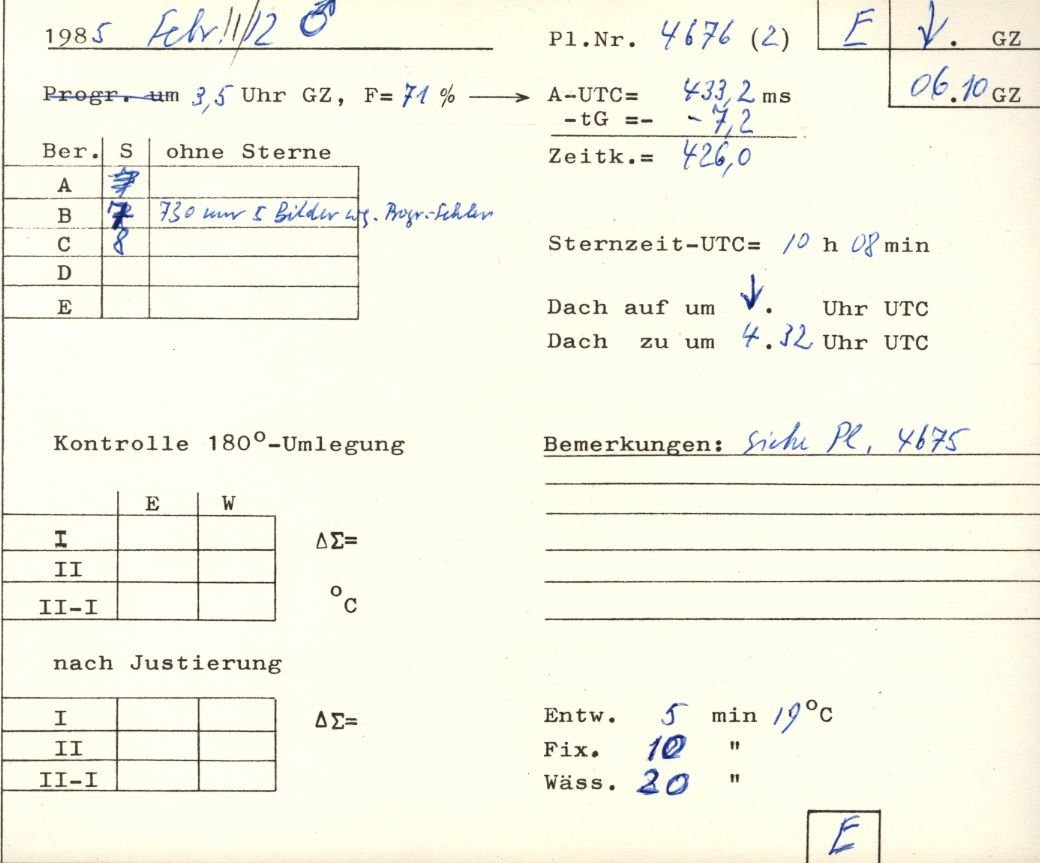 1985 Febr. 11/12 ♂ Pl.Nr. 4676 (2) E ↓. GZ
Progr. um 3,5 Uhr GZ, F= 71 % → A-UTC= 433,2 ms 06.10 GZ
-tG =- -7,2
Ber. S ohne Sterne Zeitk.= 426,0
A
B 7 730 nur 5 Bilder wg. Progr.-Fehler
C 8 Sternzeit-UTC= 10 h 08 min
D
E Dach auf um ↓. Uhr UTC
Dach zu um 4.32 Uhr UTC
Kontrolle 180°-Umlegung Bemerkungen: siehe Pl. 4675
E W
I ΔΣ=
II
II-I °C
nach Justierung
I ΔΣ= Entw. 5 min 19°C
II Fix. 10 "
II-I Wäss. 20 "
E